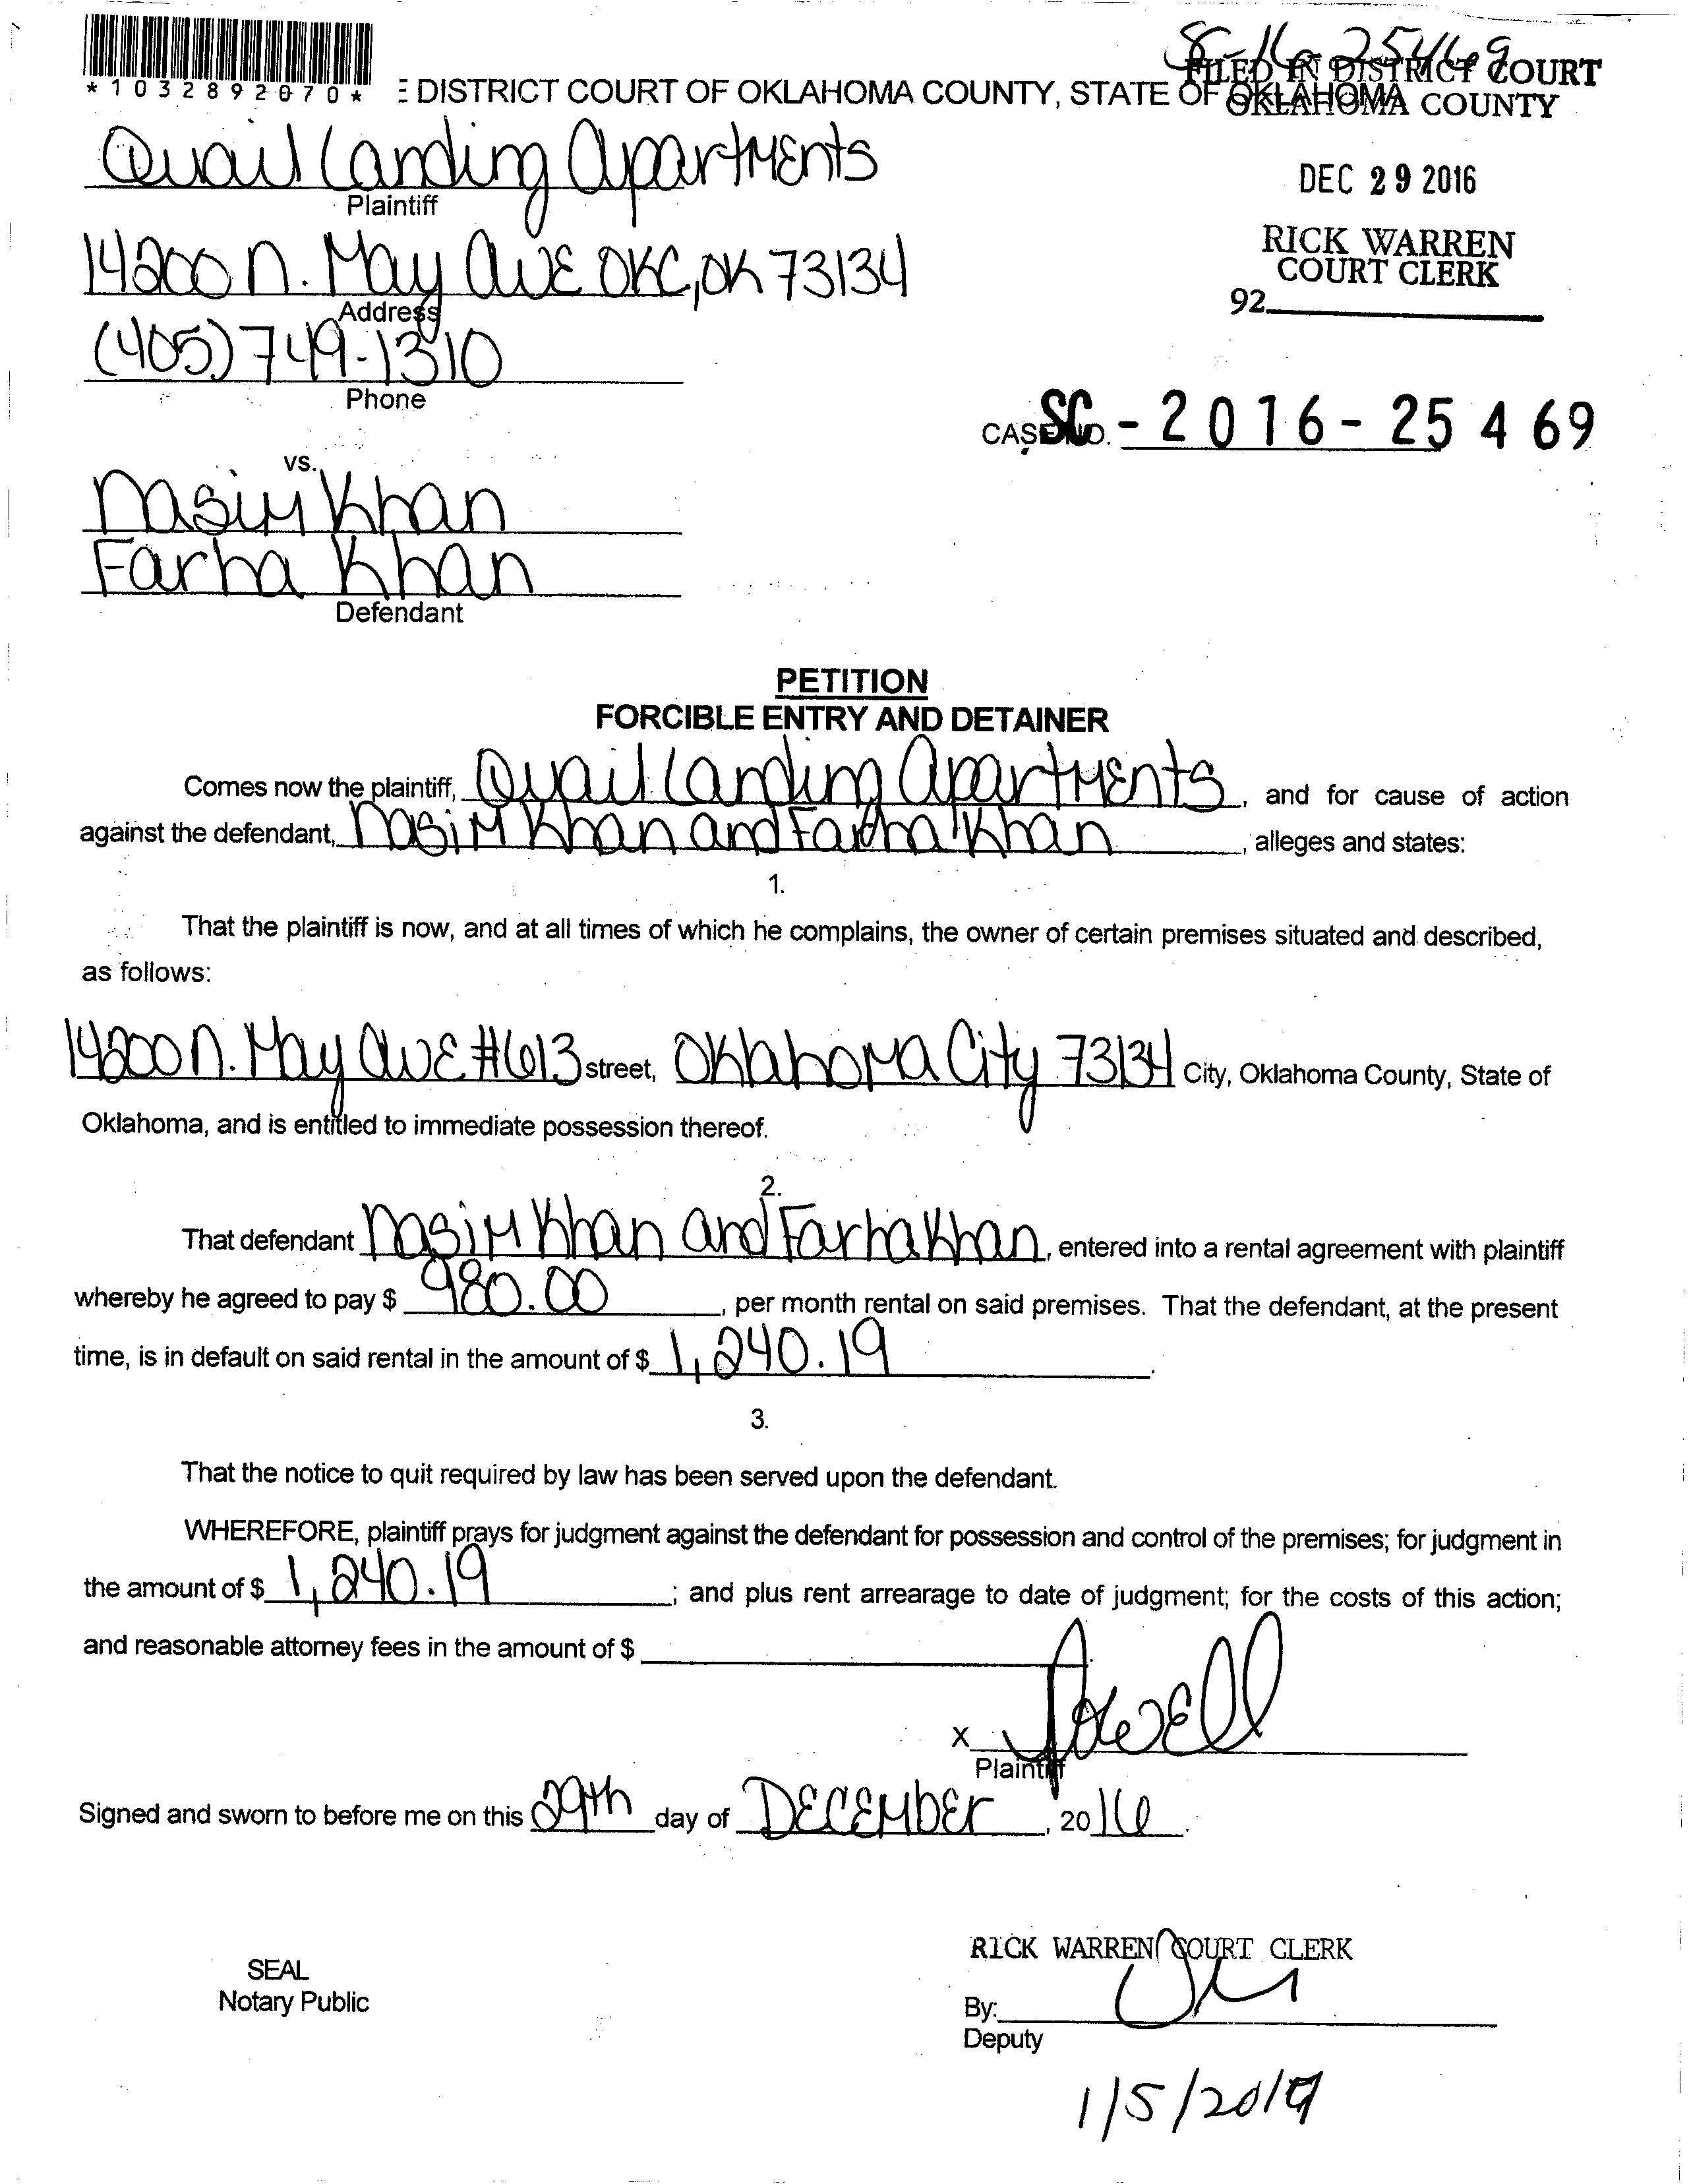 SC-16-25469
FILED IN DISTRICT COURT
*1032892070* E DISTRICT COURT OF OKLAHOMA COUNTY, STATE OF OKLAHOMA COUNTY
Quail Landing Apartments
Plaintiff
DEC 29 2016
RICK WARREN
COURT CLERK
92
14200 N. May AvE OKC, OK 73134
Address
(405) 749-1310
Phone
CASE NO. SC - 2016 - 25469
vs.
Nasim Khan
Farha Khan
Defendant
PETITION
FORCIBLE ENTRY AND DETAINER
Comes now the plaintiff, Quail Landing Apartments, and for cause of action
against the defendant, Nasim Khan and Farha Khan, alleges and states:
1.
That the plaintiff is now, and at all times of which he complains, the owner of certain premises situated and described,
as follows:
14200 N. May AvE #613 street, Oklahoma City 73134 City, Oklahoma County, State of
Oklahoma, and is entitled to immediate possession thereof.
2.
That defendant Nasim Khan and Farha Khan, entered into a rental agreement with plaintiff
whereby he agreed to pay $ 980.00, per month rental on said premises. That the defendant, at the present
time, is in default on said rental in the amount of $ 1,240.19.
3.
That the notice to quit required by law has been served upon the defendant.
WHEREFORE, plaintiff prays for judgment against the defendant for possession and control of the premises; for judgment in
the amount of $ 1,240.19; and plus rent arrearage to date of judgment; for the costs of this action;
and reasonable attorney fees in the amount of $
X
Plaintiff
Signed and sworn to before me on this 29th day of DECEMbEr, 2016.
RICK WARREN COURT CLERK
SEAL
Notary Public
By:
Deputy
1/5/2017